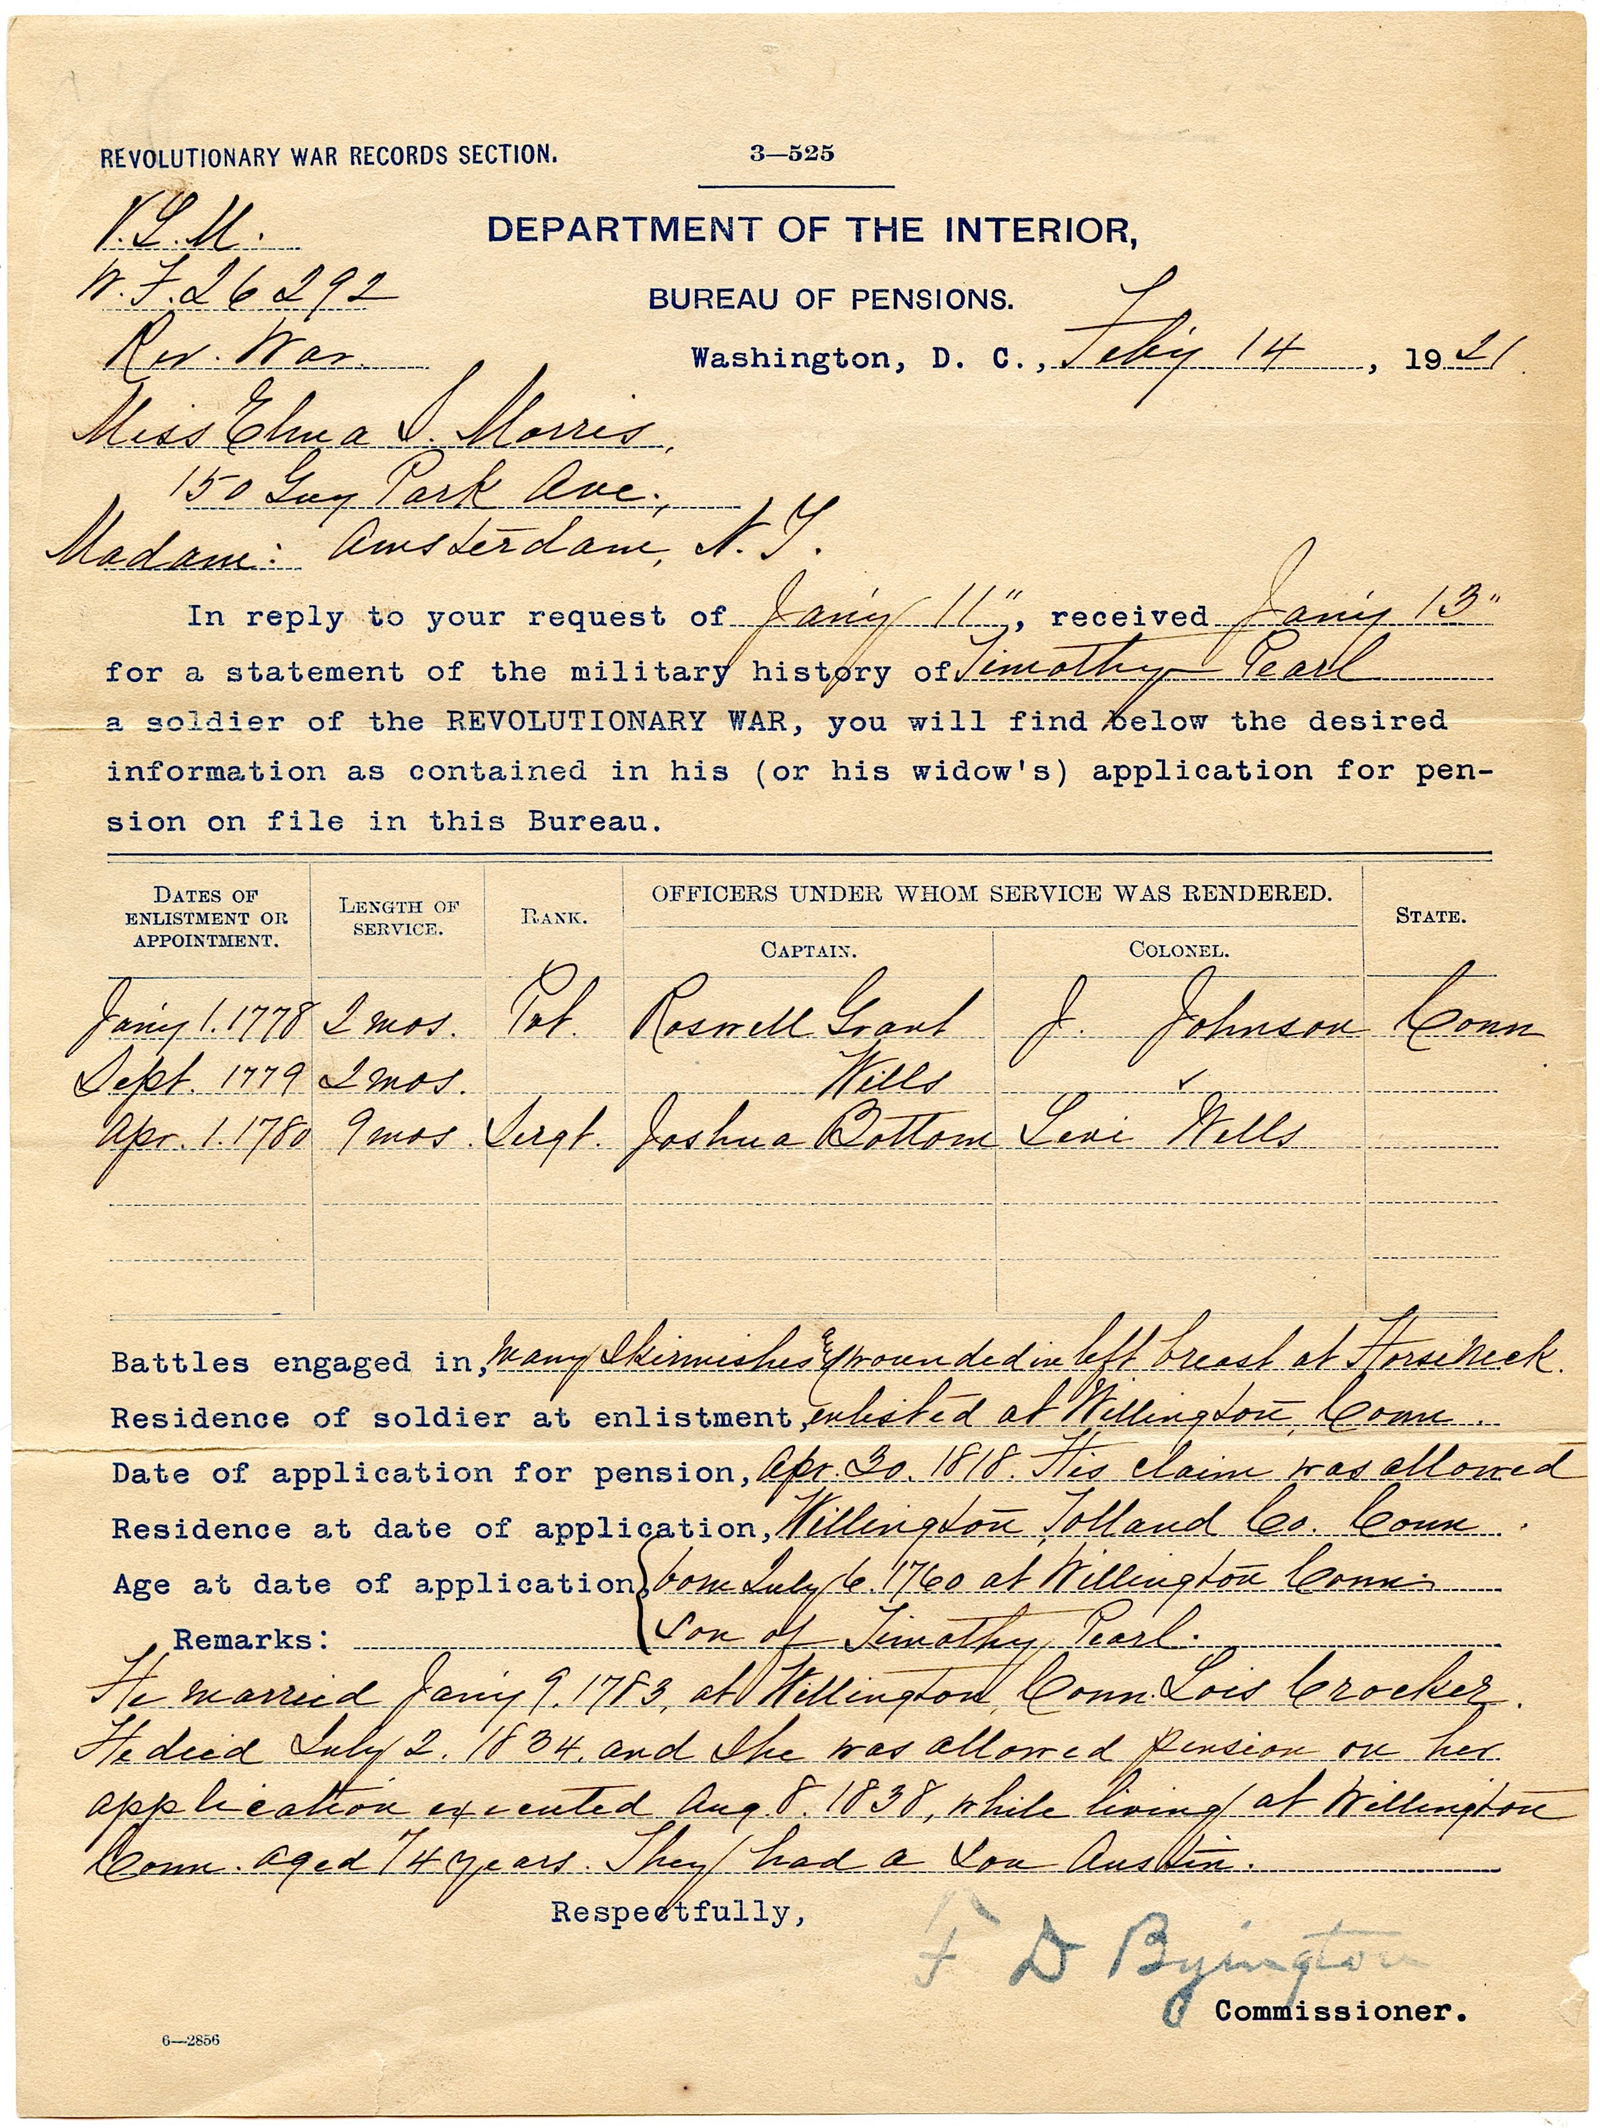 REVOLUTIONARY WAR RECORDS SECTION.
3—525
V.L.M.
DEPARTMENT OF THE INTERIOR,
W.F. 26292
BUREAU OF PENSIONS.
Rev. War.
Washington, D. C., Feb'y 14, 1921
Miss Elma S. Morris,
150 Guy Park Ave.,
Madam: Amsterdam, N.Y.
In reply to your request of Jan'y 11", received Jan'y 13"
for a statement of the military history of Timothy Pearl
a soldier of the REVOLUTIONARY WAR, you will find below the desired
information as contained in his (or his widow's) application for pen-
sion on file in this Bureau.
DATES OF ENLISTMENT OR APPOINTMENT. LENGTH OF SERVICE. RANK. OFFICERS UNDER WHOM SERVICE WAS RENDERED. STATE.
CAPTAIN. COLONEL.
Jan'y 1. 1778 2 mos. Pvt. Roswell Grant J. Johnson Conn
Sept. 1779 2 mos. Wills ✓
Apr. 1. 1780 9 mos. Sergt. Joshua Bottom Levi Wells
Battles engaged in, many skirmishes & wounded in left breast at Horseneck.
Residence of soldier at enlistment, enlisted at Willington, Conn.
Date of application for pension, Apr. 30. 1818. His claim was allowed
Residence at date of application, Willington, Tolland Co. Conn.
Age at date of application, born July 6. 1760 at Willington Conn.
Remarks: son of Timothy Pearl.
He married Jan'y 9. 1783, at Willington, Conn. Lois Crocker.
He died July 2. 1834. and she was allowed pension on her
application executed Aug. 8. 1838, while living at Willington
Conn. aged 74 years. They had a son Austin.
Respectfully,
F D Byington
Commissioner.
6—2856